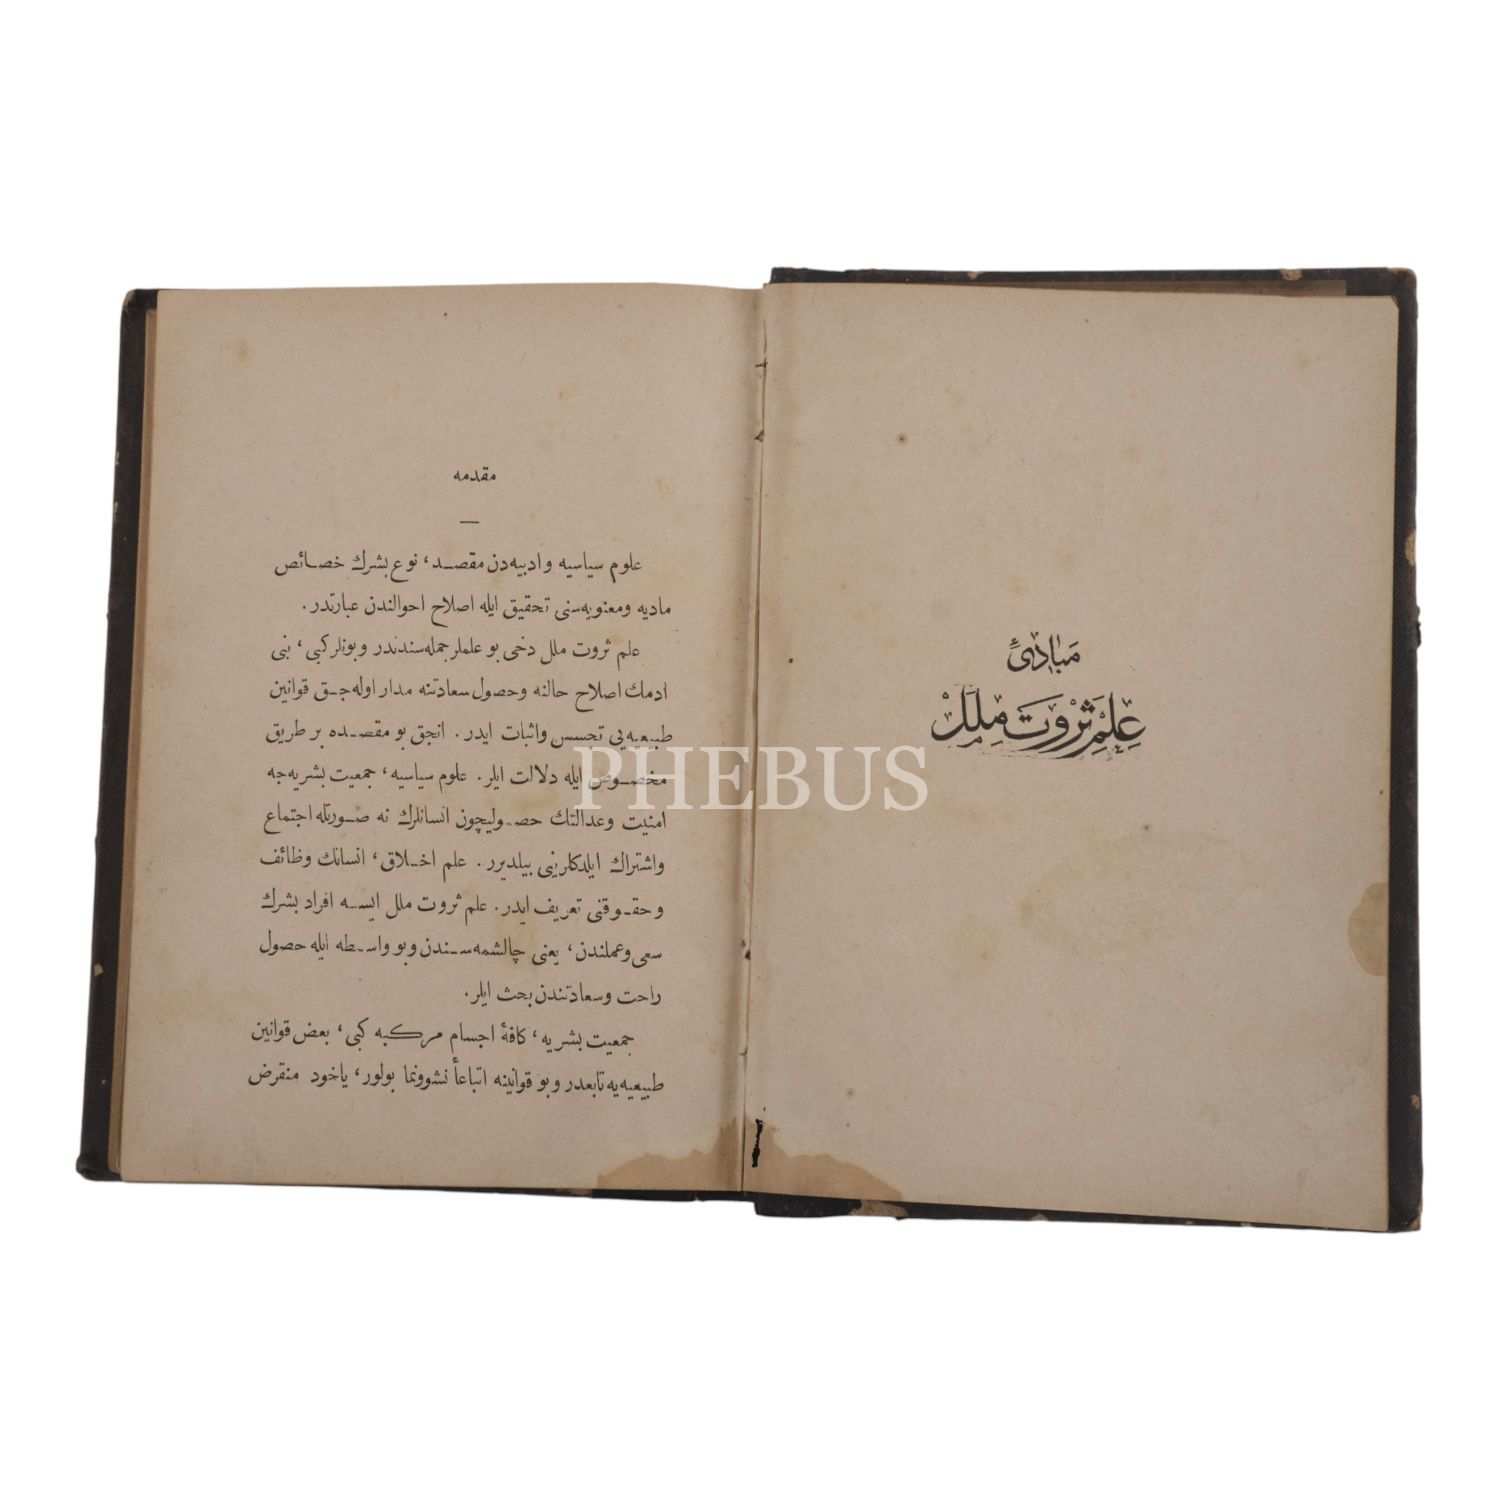 مبادئ
علم ثروت ملل
مقدمه
علوم سياسيه و ادبيه‌دن مقصد، نوع بشرك خصائص
ماديه ومعنويه‌سنى تحقيق ايله اصلاح احوالندن عبارتدر.
علم ثروت ملل دخى بو علملر جمله‌سندندر و بونلر كبى، بنى
ادمك اصلاح حالنه وحصول سعادتنه مدار اوله‌جق قوانين
طبيعيه‌يى تحسس واثبات ايدر. انجق بو مقصده بر طريق
مخصوص ايله دلالت ايلر. علوم سياسيه، جمعيت بشريه‌جه
امنيت وعدالتك حصوليچون انسانلرك نه صورتله اجتماع
واشتراك ايلدكلرينى بيلديرر. علم اخلاق، انسانك وظائف
و حقوقنى تعريف ايدر. علم ثروت ملل ايسه افراد بشرك
سعى وعملندن، يعنى چالشمه‌سندن وبو واسطه ايله حصول
راحت وسعادتندن بحث ايلر.
جمعيت بشريه، كافۀ اجسام مركبه كبى، بعض قوانين
طبيعيه‌يه تابعدر و بو قوانينه اتباعاً نشوونما بولور، ياخود منقرض
PHEBUS